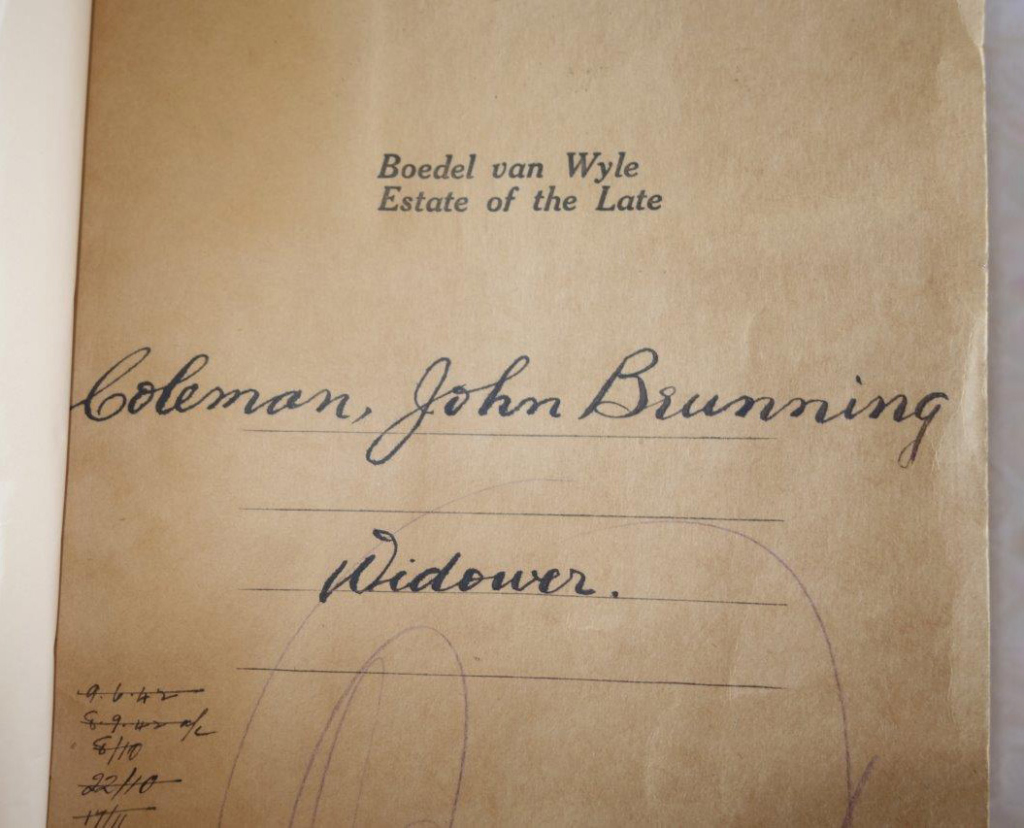 Boedel van Wyle
Estate of the Late
Coleman, John Brunning
Widower.
9.6.42
8.9.42 a/c
8/10
22/10
17/11